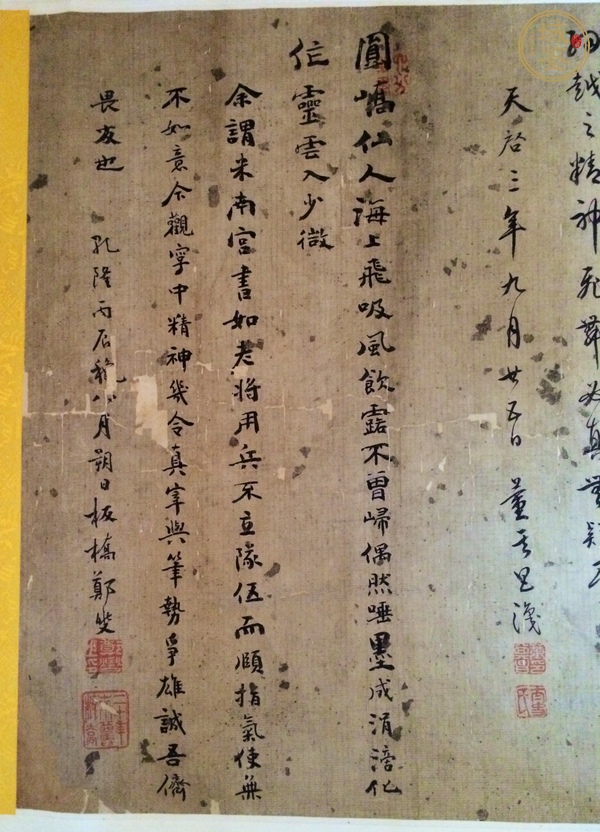 越之精神飛舞為真無疑
天啓三年九月廿五日董其昌識
圓嶠仙人海上飛吸風飲露不曾歸偶然唾墨成涓滴化
作靈雲入少微
余謂米南宮書如老將用兵不立隊伍而頤指氣使無
不如意今觀字中精神幾令真宰與筆勢爭雄誠吾儕
畏友也
乾隆丙辰秋八月朔日板橋鄭燮